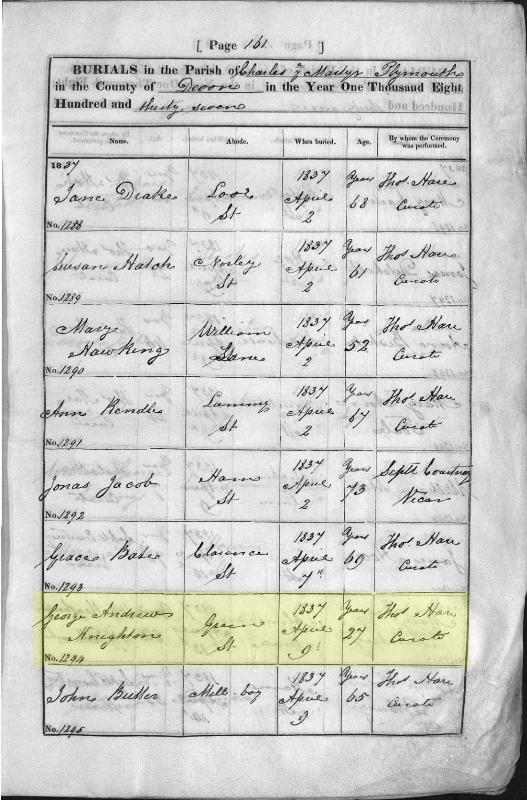 [ Page 161 ]
BURIALS in the Parish of Charles yᵉ Martyr Plymouth
in the County of Devon in the Year One Thousand Eight
Hundred and thirty seven
Name. Abode. When buried. Age. By whom the Ceremony was performed.
1837
Jane Drake
No. 1288
St
1837
April
2
Years
68
Thos. Hare
Curate
Susan Hatch
No. 1289
Norley
St
1837
April
2
Years
61
Thos. Hare
Curate
Mary
Hawkings
No. 1290
William
Lane
1837
April
2
Years
52
Thos. Hare
Curate
Ann Rendle
No. 1291
St
1837
April
2
Years
67
Thos. Hare
Curate
Jonas Jacob
No. 1292
Ham
St
1837
April
2
Years
73
Septs. Courtney
Vicar
Grace Bate
No. 1293
Clarence
St
1837
April
7
Years
69
Thos. Hare
Curate
George Andrew
Knighton
No. 1294
Green
St
1837
April
9
Years
27
Thos. Hare
Curate
John Butler
No. 1295
Mill-bay
1837
April
9
Years
65
Thos. Hare
Curate